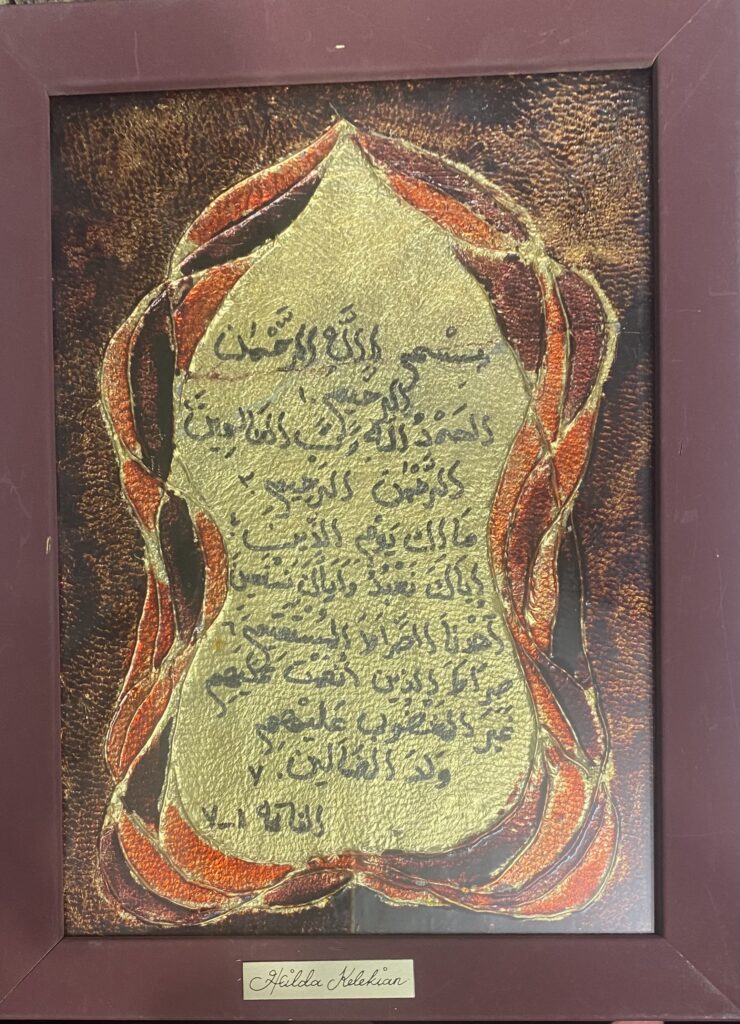 بِسْمِ اللَّهِ الرَّحْمٰنِ
الرحيم ١.
الحَمْدُ للّهِ رَبِّ العَالَمِينَ ٢
الرَّحْمٰنِ الرَحِيمِ ٣.
مَالِكِ يَوْمِ الدِّينِ ٤
إيَاكَ نَعْبُدُ وَإيَاكَ نَسْتَعِينُ
اهْدِنَا الصِّرَاطَ المُسْتَقِيمَ ٦
صِرَاطَ الذِينَ أنعَمْتَ عَلَيهِم
غَيرِ المَغضُوبِ عَلَيْهِمْ
وَلَا الضَالِّينَ. ٧
الفاتحة ١-٧
Hilda Kelekian